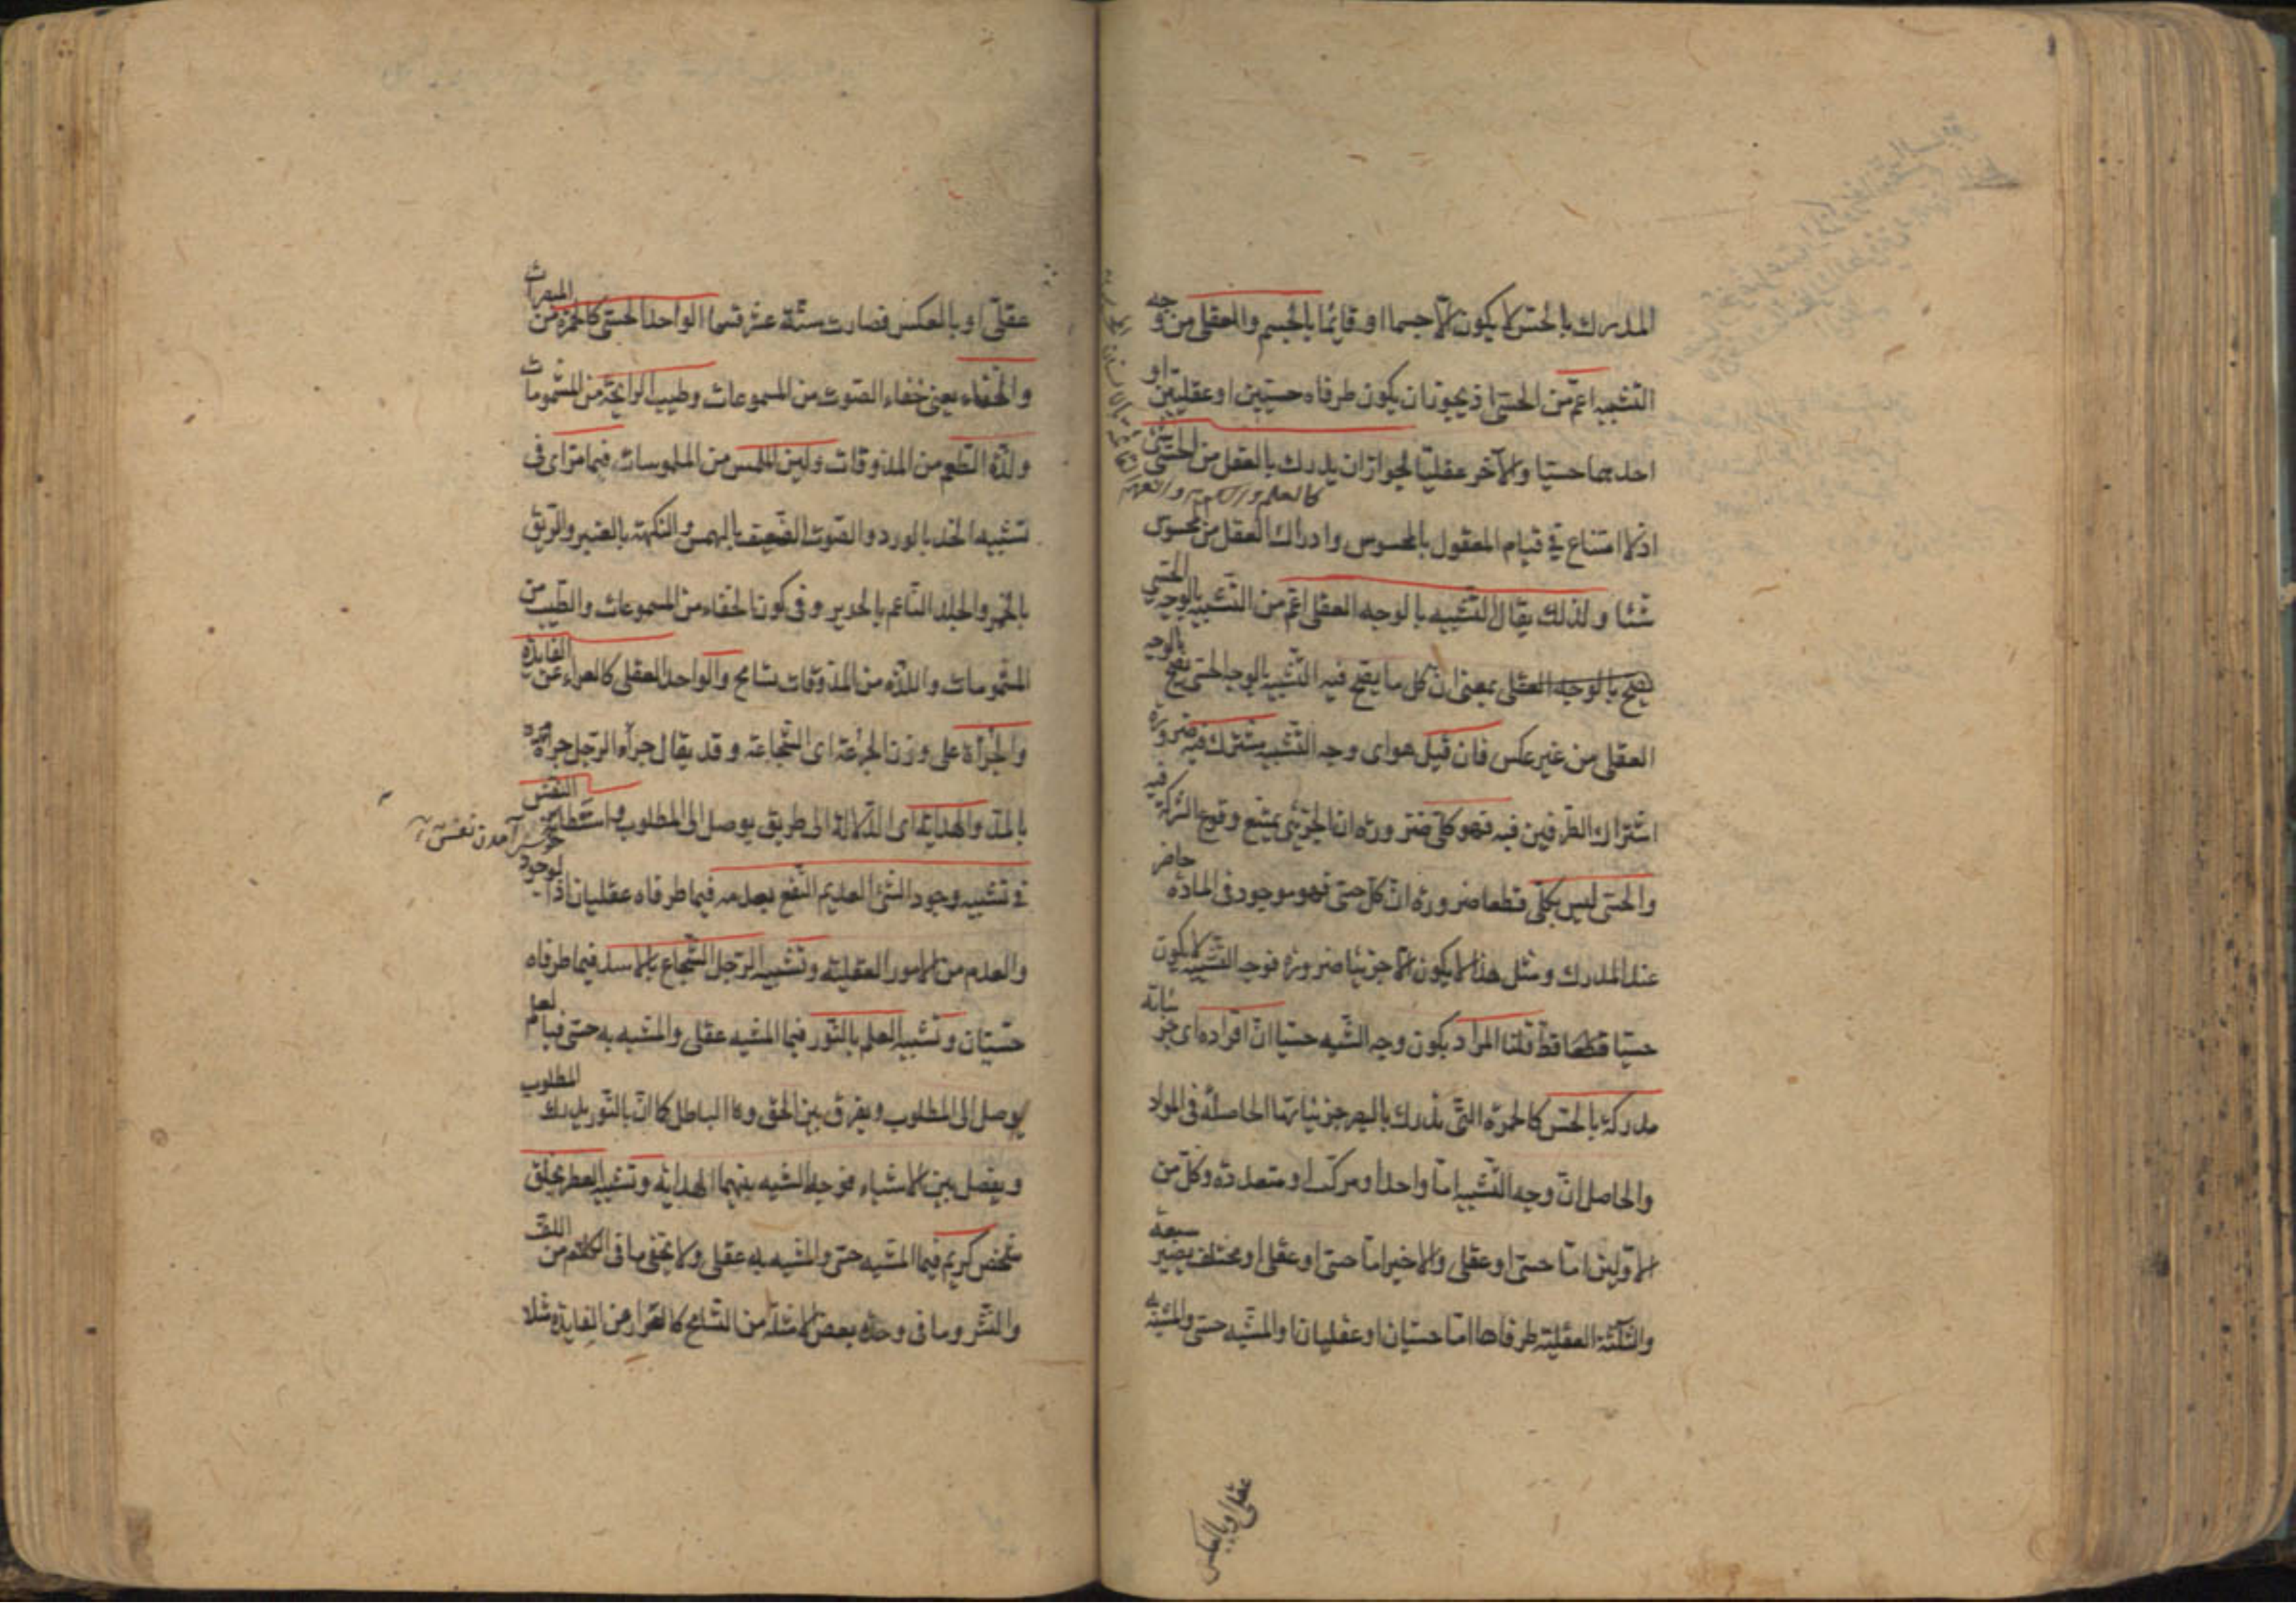 المدرك بالحس لا يكون الا جسما او قائما بالجسم والعقلي من وجه
التشبيه اعم من الحسي اذ يجوز ان يكون طرفاه حسيين او عقليين او
احدهما حسيا والآخر عقليا لجواز ان يدرك بالعقل من الحسي شئ
اذ لا امتناع في قيام المعقول بالمحسوس وادراك العقل من المحسوس
شئا ولذلك يقال التشبيه بالوجه العقلي اعم من التشبيه بالوجه الحسي
بمعنى ان كل ما يصح فيه التشبيه بالوجه الحسي يصح بالوجه
العقلي من غير عكس فان قيل هو اى وجه التشبيه مشترك فيه ضرورة
اشتراك الطرفين فيه فهو كلي ضرورة ان الجزئي يمتنع وقوع الشركة فيه
والحسي ليس بكلي قطعا ضرورة ان كل حسي فهو موجود في المادة حاضر
عند المدرك ومثل هذا لا يكون الا جزئيا ضرورة فوجه التشبيه لا يكون
حسيا قط قلنا المراد بكون وجه الشبه حسيا ان افراده اى جزئياته
مدركة بالحس كالحمرة التي تدرك بالبصر جزئياتها الحاصلة في المواد
والحاصل ان وجه التشبيه اما واحد او مركب او متعدد وكل من
الاولين اما حسي او عقلي والاخير اما حسي او عقلي او مختلف يصير سبعة
والثلثة العقلية طرفاها اما حسيان او عقليان او المشبه حسي والمشبه به
عقلي او بالعكس
عقلي او بالعكس فصارت ستة عشر قسما الواحد الحسي كالحمرة من المبصرات
والخفاء يعنى خفاء الصوت من المسموعات وطيب الرايحة من المشمومات
ولذة الطعم من المذوقات ولين الملمس من الملموسات فيما مر اى في
تشبيه الخد بالورد والصوت الضعيف بالهمس والنكهة بالعنبر والريق
بالخمر والجلد الناعم بالحرير وفي كون الخفاء من المسموعات والطيب من
المشمومات واللذة من المذوقات تسامح والواحد العقلي كالعراء عن الفايدة
والجرأة على وزن الجرعة اى الشجاعة وقد يقال جرأ الرجل جرأة
بالمد والهداية اى الدلالة الى طريق يوصل الى المطلوب واستطابة النفس
خوش آمدن نفس
في تشبيه وجود الشئ العديم النفع بعدمه فيما طرفاه عقليان اذ الوجود
والعدم من الامور العقلية وتشبيه الرجل الشجاع بالاسد فيما طرفاه
حسيان وتشبيه العلم بالنور فيما المشبه عقلي والمشبه به حسي فبالعلم
يوصل الى المطلوب ويفرق بين الحق والباطل كما ان بالنور يدرك المطلوب
ويفصل بين الاشياء فوجه الشبه بينهما الهداية وتشبيه العطر بخلق
شخص كريم فيما المشبه حسي والمشبه به عقلي ولا يخفى ما في الكلام من اللف
والنشر وما في وحدة بعض الامثلة من التسامح كالعراء عن الفايدة مثلا